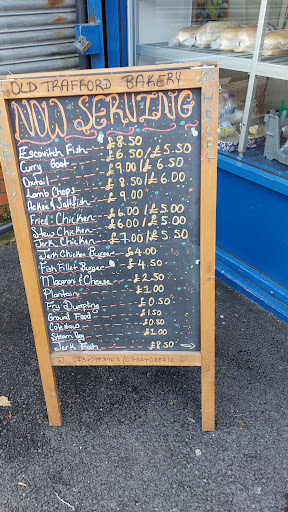 OLD TRAFFORD BAKERY
NOW SERVING
Escovitch Fish £8.50
Curry Goat £6.50/£5.50
Oxtail £9.00/£6.50
Lamb Chops £8.50/£6.00
Ackee & Saltfish £9.00
Fried Chicken £6.00/£5.00
Stew Chicken £6.00/£5.00
Jerk Chicken £7.00/£5.50
Jerk Chicken Burger £4.00
Fish Fillet Burger £4.50
Macaroni & Cheese £2.50
Plantain £1.00
Fry Dumpling £0.50
Ground Food £1.50
Coleslaw £0.50
Steam Veg £1.00
Jerk Fish £8.50